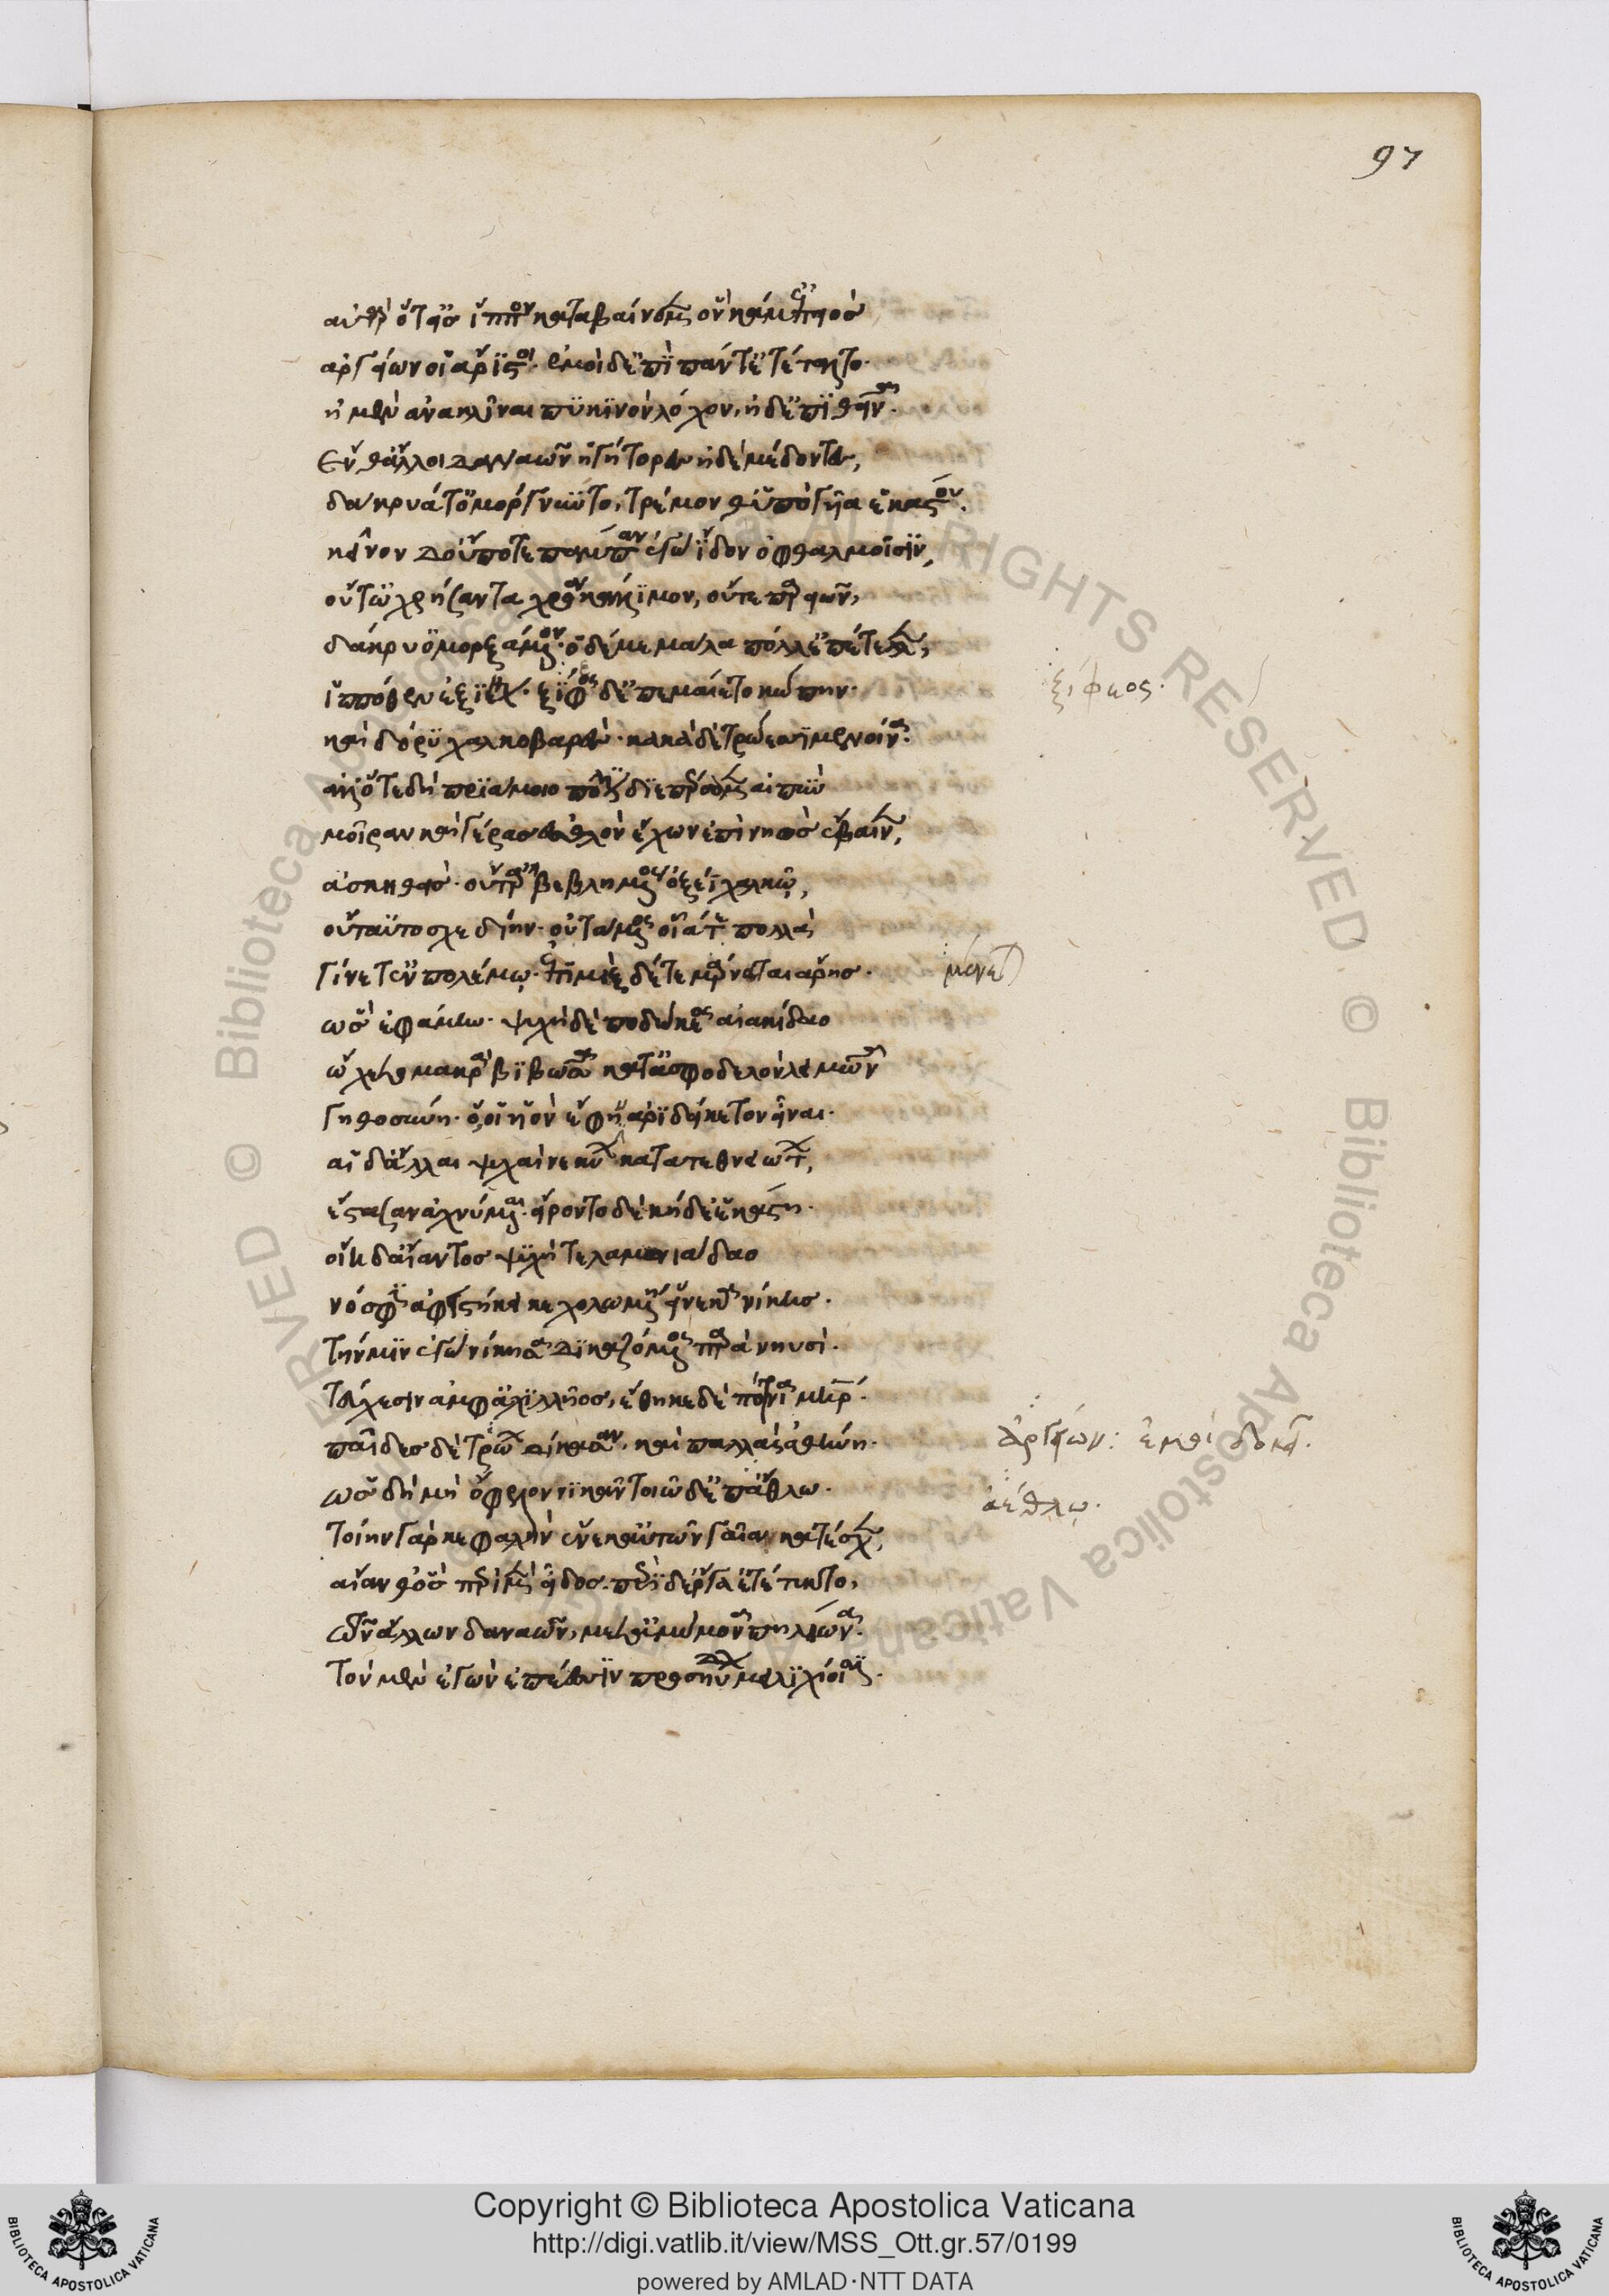 97
αὐτὰρ ὅτ' εἰς ἵππον κατεβαίνομεν ὃν κάμ' ἐπειὸς
ἀργείων οἱ ἄριστοι· ἐμοὶ δ' ἐπὶ πάντ' ἐτέταλτο·
ἠμὲν ἀνακλῖναι πυκινὸν λόχον, ἠδ' ἐπιθεῖναι·
ἔνθ' ἄλλοι δαναῶν ἡγήτορες ἠδὲ μέδοντες,
δάκρυά τ' ὀμόργνυντο, τρέμον θ' ὑπὸ γυῖα ἑκάστου·
κεῖνον δ' οὔποτε πάμπαν ἐγὼν ἴδον ὀφθαλμοῖσιν,
οὔτ' ὠχρήσαντα χρόα κάλλιμον, οὔτε παρειῶν,
δάκρυ' ὀμορξάμενον· ὁ δέ με μάλα πόλλ' ἱκέτευεν,
ἱππόθεν ἐξίμεναι· ξίφεος δ' ἐπεμαίετο κώπην·
ξίφεος·
καὶ δόρυ χαλκοβαρές· κακὰ δὲ τρώεσσι μενοίνα·
ἀλλ' ὅτε δὴ πριάμοιο πόλιν διεπέρσαμεν αἰπὴν
μοῖραν καὶ γέρας ἐσθλὸν ἔχων ἐπὶ νηὸς ἔβαινεν,
ἀσκηθὴς· οὔτ' ἂρ βεβλημένος ὀξέϊ χαλκῷ,
οὔτ' αὐτοσχεδίην οὐτασμένος οἷά τε πολλὰ
γίνετ' ἐν πολέμῳ· ἐπιμὶξ δέ τε μαίνεται ἄρης·
ὣς ἐφάμην· ψυχὴ δὲ ποδώκεος αἰακίδαο
ᾤχετο μακρὰ βιβῶσα κατ' ἀσφοδελὸν λειμῶνα
γηθοσύνη· ὅ οἱ υἱὸν ἔφην ἀριδείκετον εἶναι·
αἱ δ' ἄλλαι ψυχαὶ νεκύων κατατεθνειώτων,
ἕστασαν ἀχνύμεναι· εἴροντο δὲ κήδε' ἑκάστη·
οἴη δ' αἴαντος ψυχὴ τελαμωνιάδαο
νόσφιν ἀφεστήκει κεχολωμένη εἵνεκα νίκης·
τήν μιν ἐγὼ νίκησα δικαζόμενος παρὰ νηυσὶ·
τεύχεσιν ἀμφ' ἀχιλλῆος, ἔθηκε δὲ πότνια μήτηρ·
παῖδες δὲ τρώων δίκασαν, καὶ παλλὰς ἀθήνη·
ὡς δὴ μὴ ὄφελον νικᾶν τοιῷδ' ἐπ' ἀέθλῳ·
ἀέθλῳ·
τοίην γὰρ κεφαλὴν ἕνεκ' αὐτῶν γαῖα κατέσχεν,
αἴανθ' ὃς πέρι μὲν εἶδος· πέρι δ' ἔργα τέτυκτο,
τῶν ἄλλων δαναῶν, μετ' ἀμύμονα πηλείωνα·
τὸν μὲν ἐγὼν ἐπέεσσιν προσηύδων μειλιχίοισι·
Copyright © Biblioteca Apostolica Vaticana
http://digi.vatlib.it/view/MSS_Ott.gr.57/0199
powered by AMLAD·NTT DATA